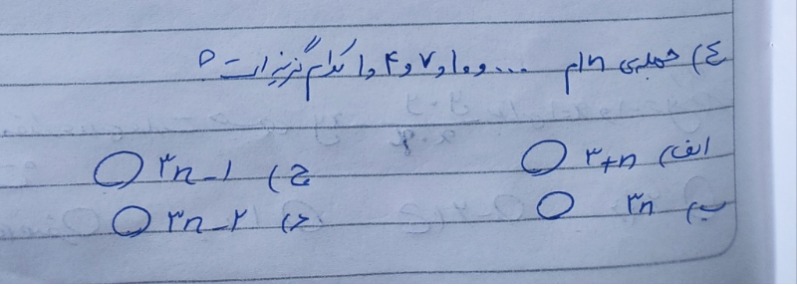 ٤) جمله‌ی nام ... و ۱۰ و ۷ و ۴ و ۱ کدام گزینه است؟
الف) ۳+n ج) ۳n-۱
ب) ۳n د) ۳n-۲